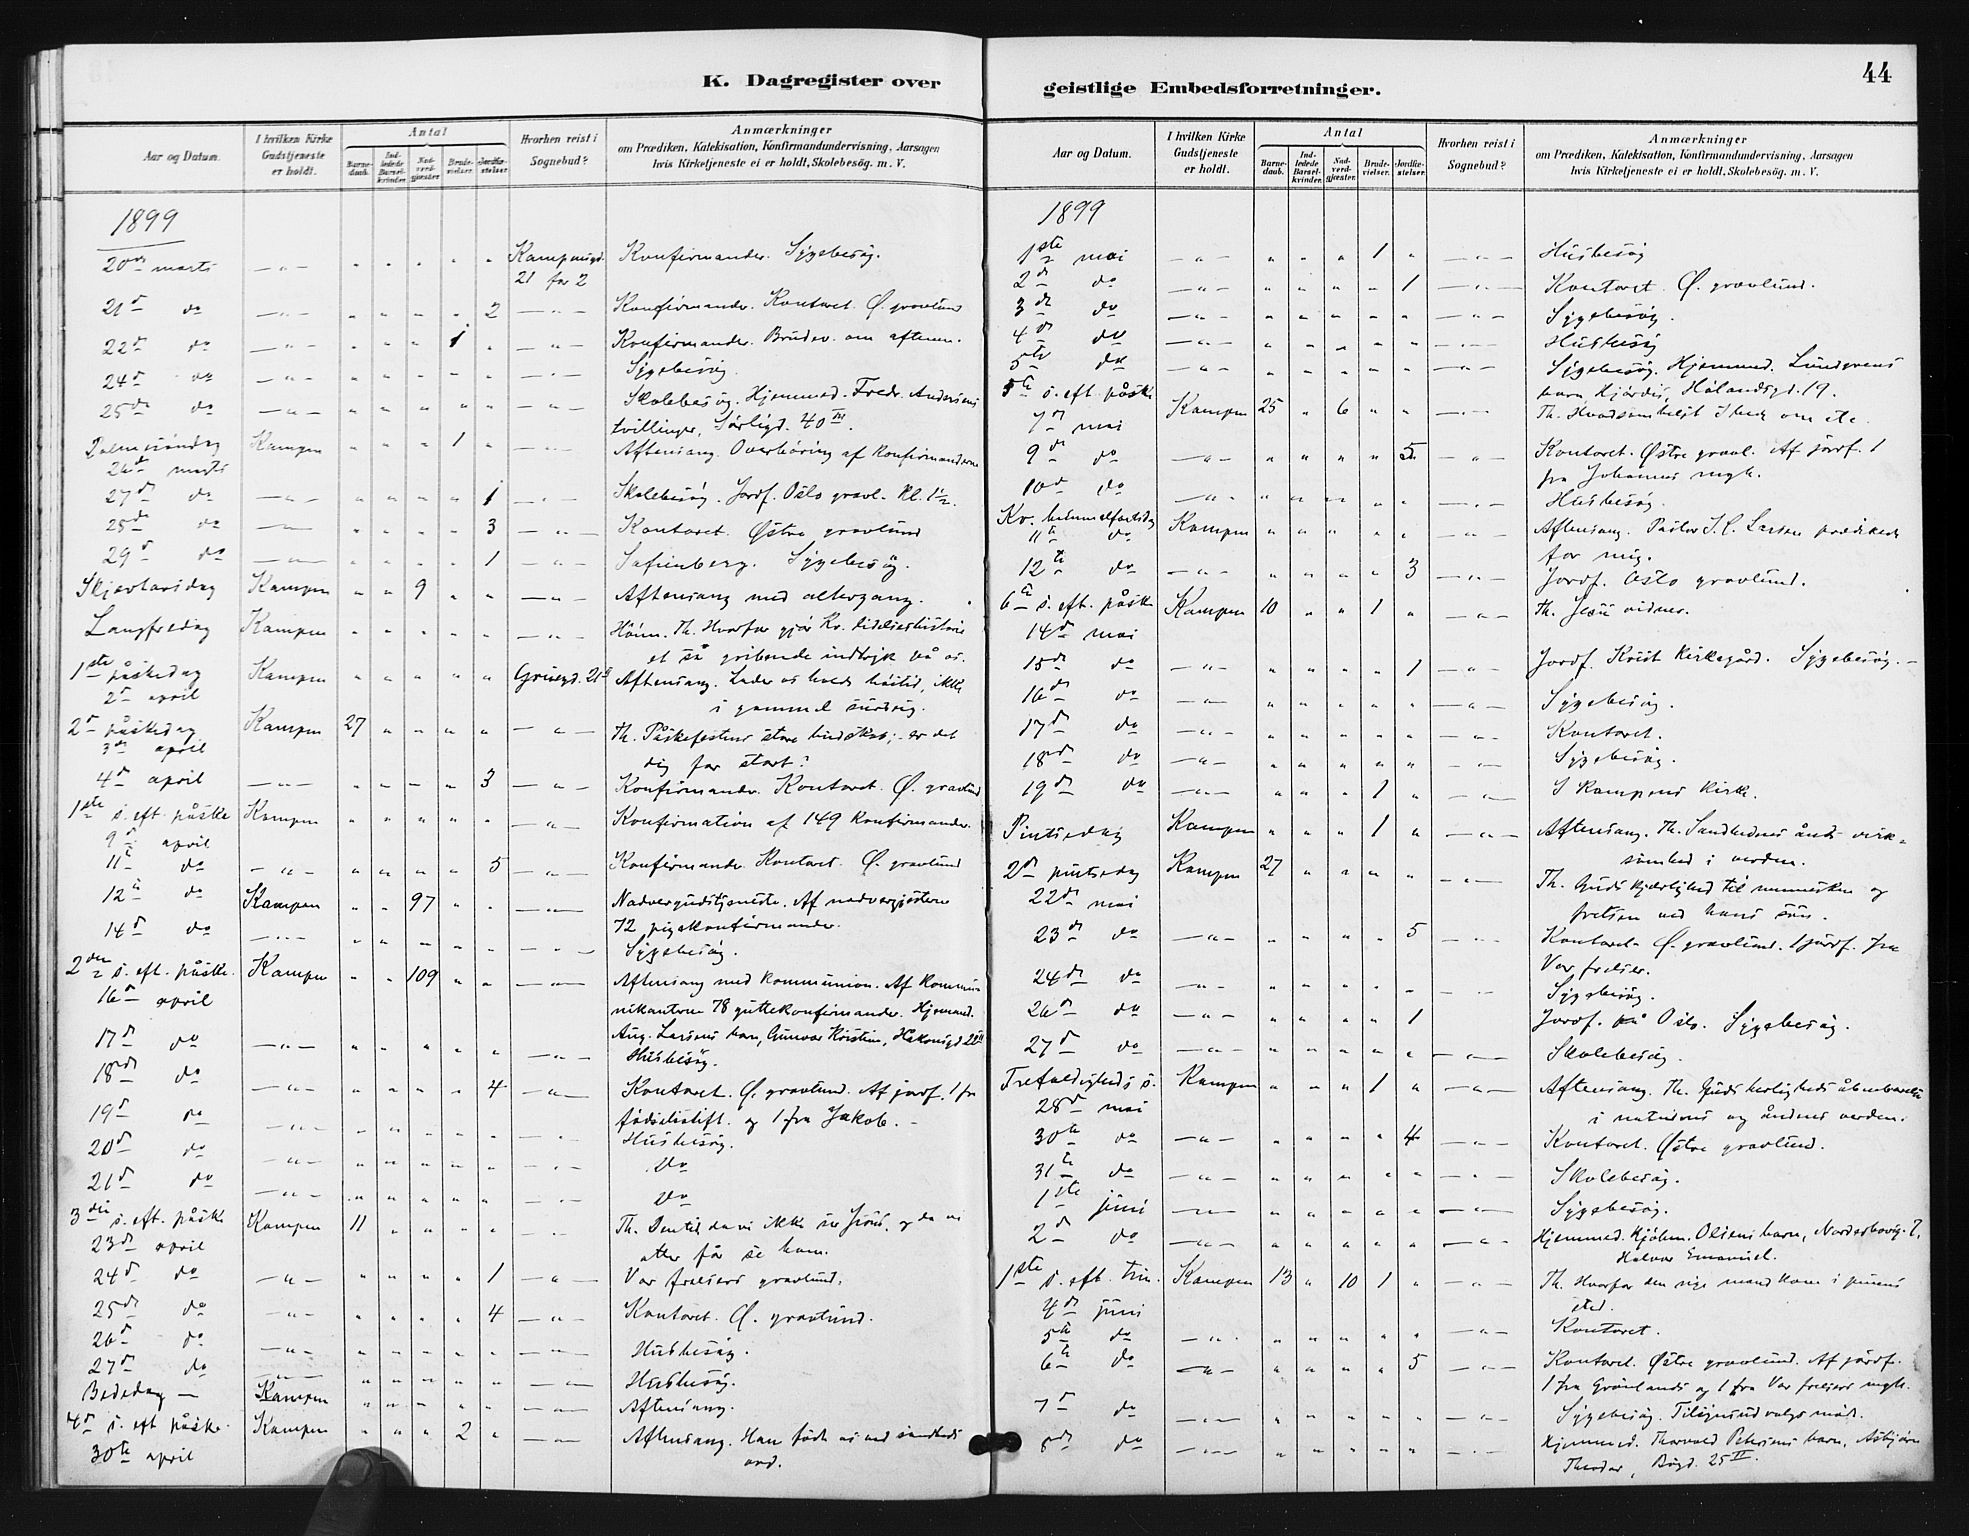 K. Dagregister over
Aar og Datum.
I hvilken Kirke Gudstjeneste er holdt.
Antal
Barne-daab.
Ind-ledede Barsel-kvinder.
Nad-verd-gjæster.
Brude-vielser.
Jordfæ-stelser.
Hvorhen reist i Sognebud?
Anmærkninger
om Prædiken, Katekisation, Konfirmandundervisning, Aarsagen
hvis Kirketjeneste ei er holdt, Skolebesög. m. V.
1899
20de marts — „ — Kampensgd. 21 for 2 Konfirmander. Sygebesøg.
21d do — „ — 2 — „ — Konfirmander. Kontoret. Ø. gravlund
22d do — „ — 1 — „ — Konfirmander. Brudev. om aftenen.
24d do — „ — Sygebesøg.
25de do — „ — Skolebesøg. Hjemmed. Fredr. Andersens
tvillinger, Sørligd. 40 III.
Palmesøndag Kampen 1 — „ — Aftensang. Overhøring af konfirmanderne
26de marts
27d do — „ — 1 — „ — Skolebesøg. Jordf. Oslo gravl. kl. 1½.
28de do — „ — 3 — „ — Kontoret. Østre gravlund
29d do — „ — 1 — „ — Sofienberg. Sygebesøg.
Skjærtorsdag Kampen 9 — „ — Aftensang med altergang.
Langfredag Kampen — „ — Høim. Th. Hvorfor gjør Kr. lidelseshistorie
et så gribende indtryk på os.
1ste påskedag Kampen Grüsegd. 21 II Aftensang. Lader os holde høitid, ikke
2d april i gammel surdeig.
2d påskedag Kampen 27 — „ — Th. Påskefestens store budskab; er det
3de april dig for stort?
4d april — „ — 3 — „ — Konfirmander. Kontoret. Ø. gravlund
1ste s. eft. påske Kampen — „ — Konfirmation af 149 konfirmander.
9d april
11te do — „ — 5 — „ — Konfirmander. Kontoret. Ø. gravlund
12te do Kampen 97 — „ — Nadvergudstjeneste. Af nadvergjesterne
72 pigekonfirmander.
14d do — „ — Sygebesøg.
2den s. eft. påske. Kampen 109 — „ — Aftensang med kommunion. Af kommu-
16d april nikanterne 78 guttekonfirmander. Hjemmed.
Aug. Larsens barn, Gunvor Kristine, Hakonsgd 28 II
17d do — „ — Husbesøg.
18de do — „ — 4 — „ — Kontoret. Ø. gravlund. Af jordf. 1 fra
fødselsstift. og 1 fra Jakob. —
19d do — „ — Husbesøg.
20d do — „ — Do
21d do — „ — Do
3die s. eft. påske Kampen 11 Th. Den tid da vi ikke se Jesus, og da vi
23de april atter får se ham.
24de do — „ — 1 — „ — Vor frelsers gravlund.
25de do — „ — 4 — „ — Kontoret. Ø. gravlund.
26d do — „ — Husbesøg.
27d do — „ — Husbesøg.
Bededag — Kampen — „ — Aftensang.
4d s. eft påske. Kampen 2 — „ — Aftensang. Han fødte os ved sandheds
30te april ord.
geistlige Embedsforretninger.
44
Aar og Datum.
I hvilken Kirke Gudstjeneste er holdt.
Antal
Barne-daab.
Ind-ledede Barsel-kvinder.
Nad-verd-gjæster.
Brude-vielser.
Jordfæ-stelser.
Hvorhen reist i Sognebud?
Anmærkninger
om Prædiken, Katekisation, Konfirmandundervisning, Aarsagen
hvis Kirketjeneste ei er holdt, Skolebesög. m. V.
1899
1ste mai — „ — 1 — „ — Husbesøg
2d do — „ — 1 — „ — Kontoret Ø. gravlund.
3de do — „ — Sygebesøg.
4d do — „ — Husbesøg
5te do — „ — Sygebesøg. Hjemmed. Lundgrens
barn Hjørdis, Hålandsgd. 19.
5te s. eft. påske Kampen 25 6 — „ — Th. Hvadsomhelst I bede om etc.
7d mai
9de do — „ — 5 — „ — Kontoret. Østre gravl. Af jordf. 1
fra Johannes mgh.
10de do — „ — Husbesøg.
Kr. himmelfartsdag Kampen — „ — Aftensang. Pastor J. C. Larsen prædikede
11te do for mig.
12te do — „ — 3 — „ — Jordf. Oslo gravlund.
6te s. eft. påske Kampen 10 1 — „ — Th. Jesu vidner.
14d mai
15de do — „ — 1 — „ — Jordf. Krist kirkegård. Sygebesøg. —
16de do — „ — Sygebesøg.
17d do — „ — Kontoret.
18de do — „ — Sygebesøg.
19de do — „ — 1 — „ — I Kampens kirke.
Pintsedag Kampen 1 — „ — Aftensang. Th. Sandhedens ånds virk-
somhed i verden.
2d pintsedag Kampen 27 — „ — Th. Guds kjærlighed til mennesken og
22de mai frelsen ved hans søn.
23de do — „ — 5 — „ — Kontoret. Ø. gravlund. 1 jordf. fra
Vor frelser.
24de do — „ — Sygebesøg.
26d do — „ — 1 — „ — Jordf. på Oslo. Sygebesøg.
27d do — „ — Skolebesøg.
Trefoldigheds s. Kampen 1 — „ — Aftensang. Th. Guds herligheds åbenbarelse
28de mai i naturens og åndens verden.
30te do — „ — 4 — „ — Kontoret. Østre gravlund.
31te do — „ — Skolebesøg.
1ste juni — „ — Sygebesøg.
2d do — „ — Hjemmed. Olsens barn, 7,
Halvor Emanuel.
1ste s. eft. trin. Kampen 13 10 1 — „ — Th. Hvorfor den rige mand kom i pinens
4de juni sted.
5te do — „ — Kontoret.
6te do — „ — 5 — „ — Kontoret. Østre gravlund. Af jordf.
1 fra Grønlands og 1 fra Vor frelsers mgh.
7d do — „ — Sygebesøg. Tilsynsudvalgs møde.
8de do — „ — Hjemmed. Thorvald Petersens barn, Asbjørn
Theodor, Bøgd. 25 II.